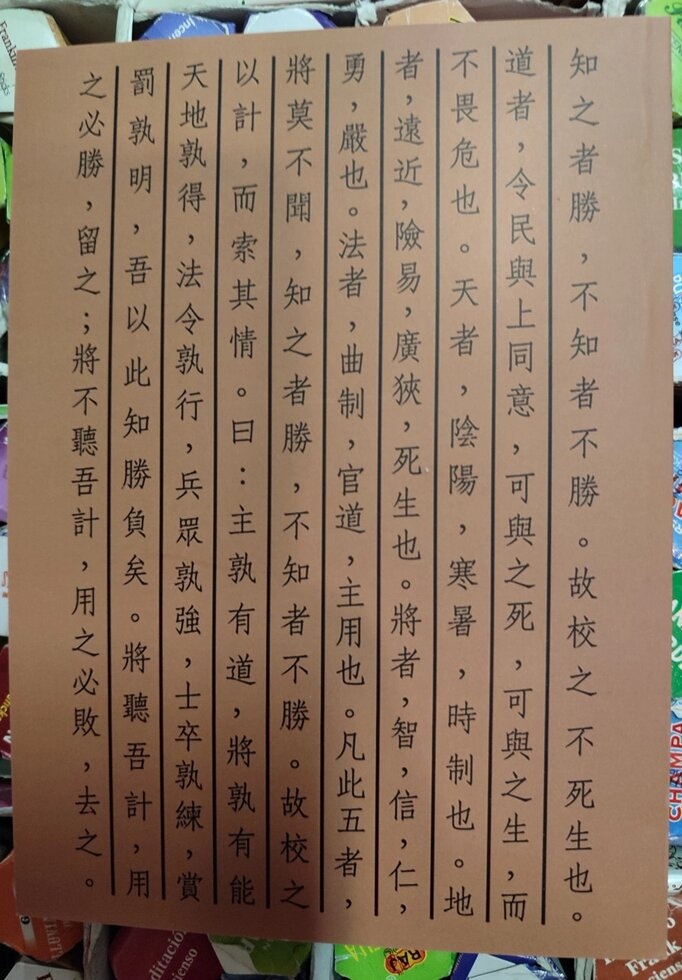 知之者勝，不知者不勝。故校之不死生也。
道者，令民與上同意，可與之死，可與之生，而
不畏危也。天者，陰陽，寒暑，時制也。地
者，遠近，險易，廣狹，死生也。將者，智，信，仁，
勇，嚴也。法者，曲制，官道，主用也。凡此五者，
將莫不聞，知之者勝，不知者不勝。故校之
以計，而索其情。曰：主孰有道，將孰有能
天地孰得，法令孰行，兵眾孰強，士卒孰練，賞
罰孰明，吾以此知勝負矣。將聽吾計，用
之必勝，留之；將不聽吾計，用之必敗，去之。
CHAMPA